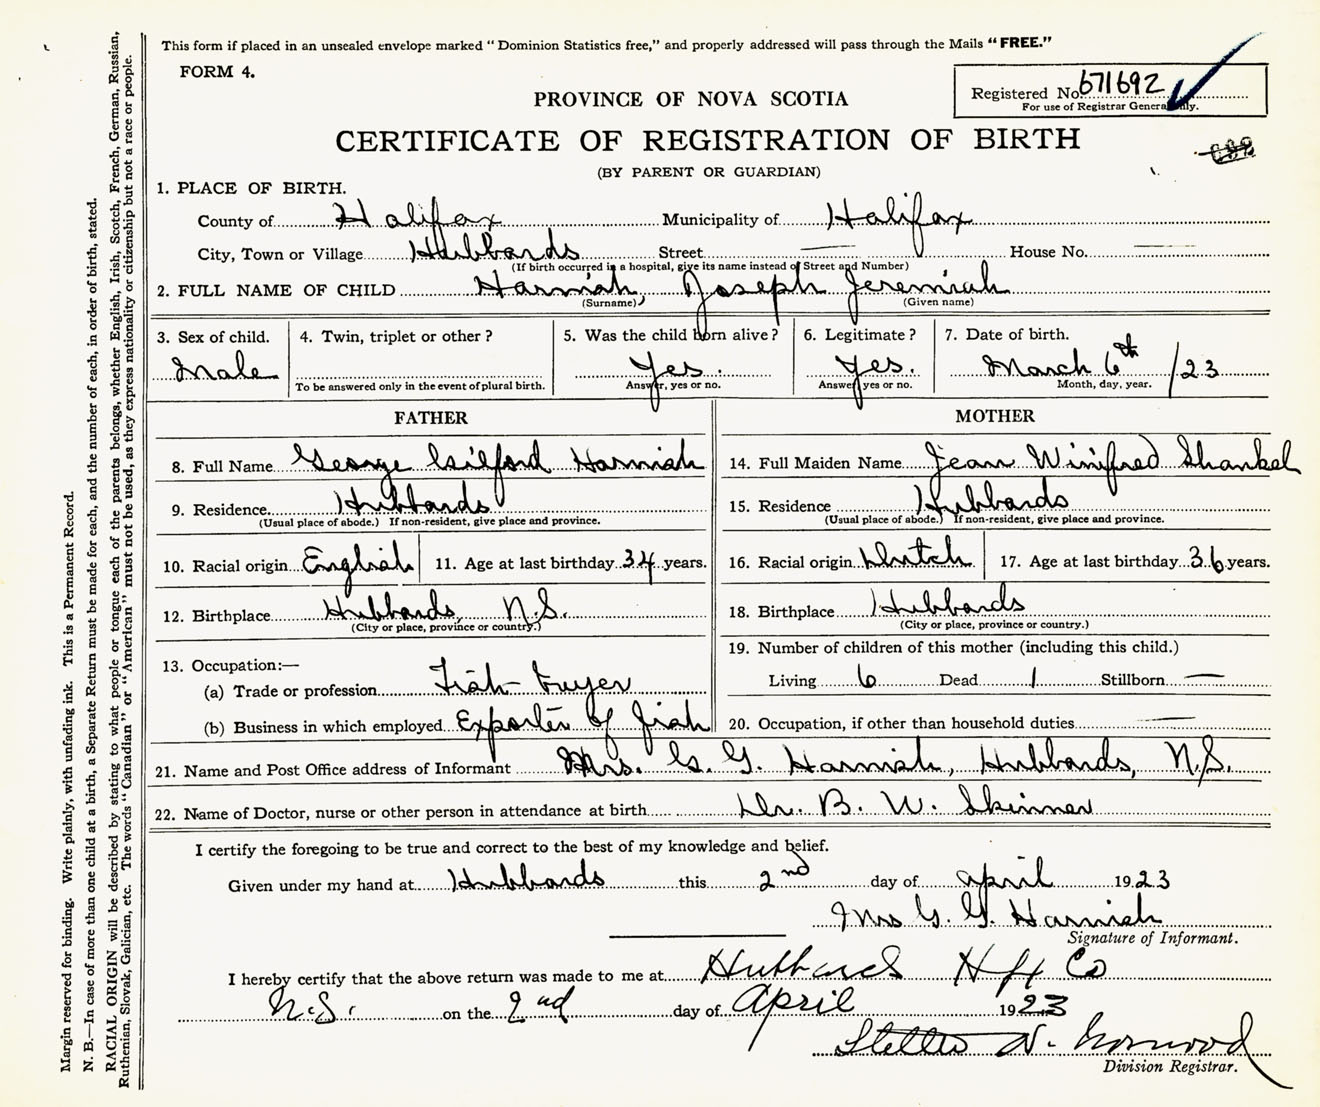 This form if placed in an unsealed envelope marked "Dominion Statistics free," and properly addressed will pass through the Mails "FREE."
FORM 4.
Registered No. 671692
For use of Registrar General only.
PROVINCE OF NOVA SCOTIA
CERTIFICATE OF REGISTRATION OF BIRTH
(BY PARENT OR GUARDIAN)
1. PLACE OF BIRTH.
County of Halifax Municipality of Halifax
City, Town or Village Hubbards Street — House No. —
(If birth occurred in a hospital, give its name instead of Street and Number)
2. FULL NAME OF CHILD Harnish, Joseph Jeremiah
(Surname) (Given name)
3. Sex of child. 4. Twin, triplet or other? 5. Was the child born alive? 6. Legitimate? 7. Date of birth.
Male Yes. Yes. March 6th /23
To be answered only in the event of plural birth. Answer, yes or no. Answer yes or no. Month, day, year.
FATHER MOTHER
8. Full Name George Guilford Harnish 14. Full Maiden Name Jean Winifred Shankel
9. Residence Hubbards 15. Residence Hubbards
(Usual place of abode.) If non-resident, give place and province. (Usual place of abode.) If non-resident, give place and province.
10. Racial origin English 11. Age at last birthday 34 years. 16. Racial origin Dutch 17. Age at last birthday 36 years.
12. Birthplace Hubbards, N.S. 18. Birthplace Hubbards
(City or place, province or country.) (City or place, province or country.)
13. Occupation:— 19. Number of children of this mother (including this child.)
(a) Trade or profession Fish buyer Living 6 Dead 1 Stillborn —
(b) Business in which employed Exporter of fish 20. Occupation, if other than household duties —
21. Name and Post Office address of Informant Mrs. G. G. Harnish, Hubbards, N.S.
22. Name of Doctor, nurse or other person in attendance at birth Dr. B. W. Skinner
I certify the foregoing to be true and correct to the best of my knowledge and belief.
Given under my hand at Hubbards this 2nd day of April 1923
Mrs G. G. Harnish
Signature of Informant.
I hereby certify that the above return was made to me at Hubbards Hfx Co
N.S. on the 2nd day of April 1923
Stella N. Norwood
Division Registrar.
Margin reserved for binding. Write plainly, with unfading ink. This is a Permanent Record.
N. B.—In case of more than one child at a birth, a Separate Return must be made for each, and the number of each, in order of birth, stated.
RACIAL ORIGIN will be described by stating to what people or tongue each of the parents belongs, whether English, Irish, Scotch, French, German, Russian,
Ruthenian, Slovak, Galician, etc. The words "Canadian" or "American" must not be used, as they express nationality or citizenship but not a race or people.